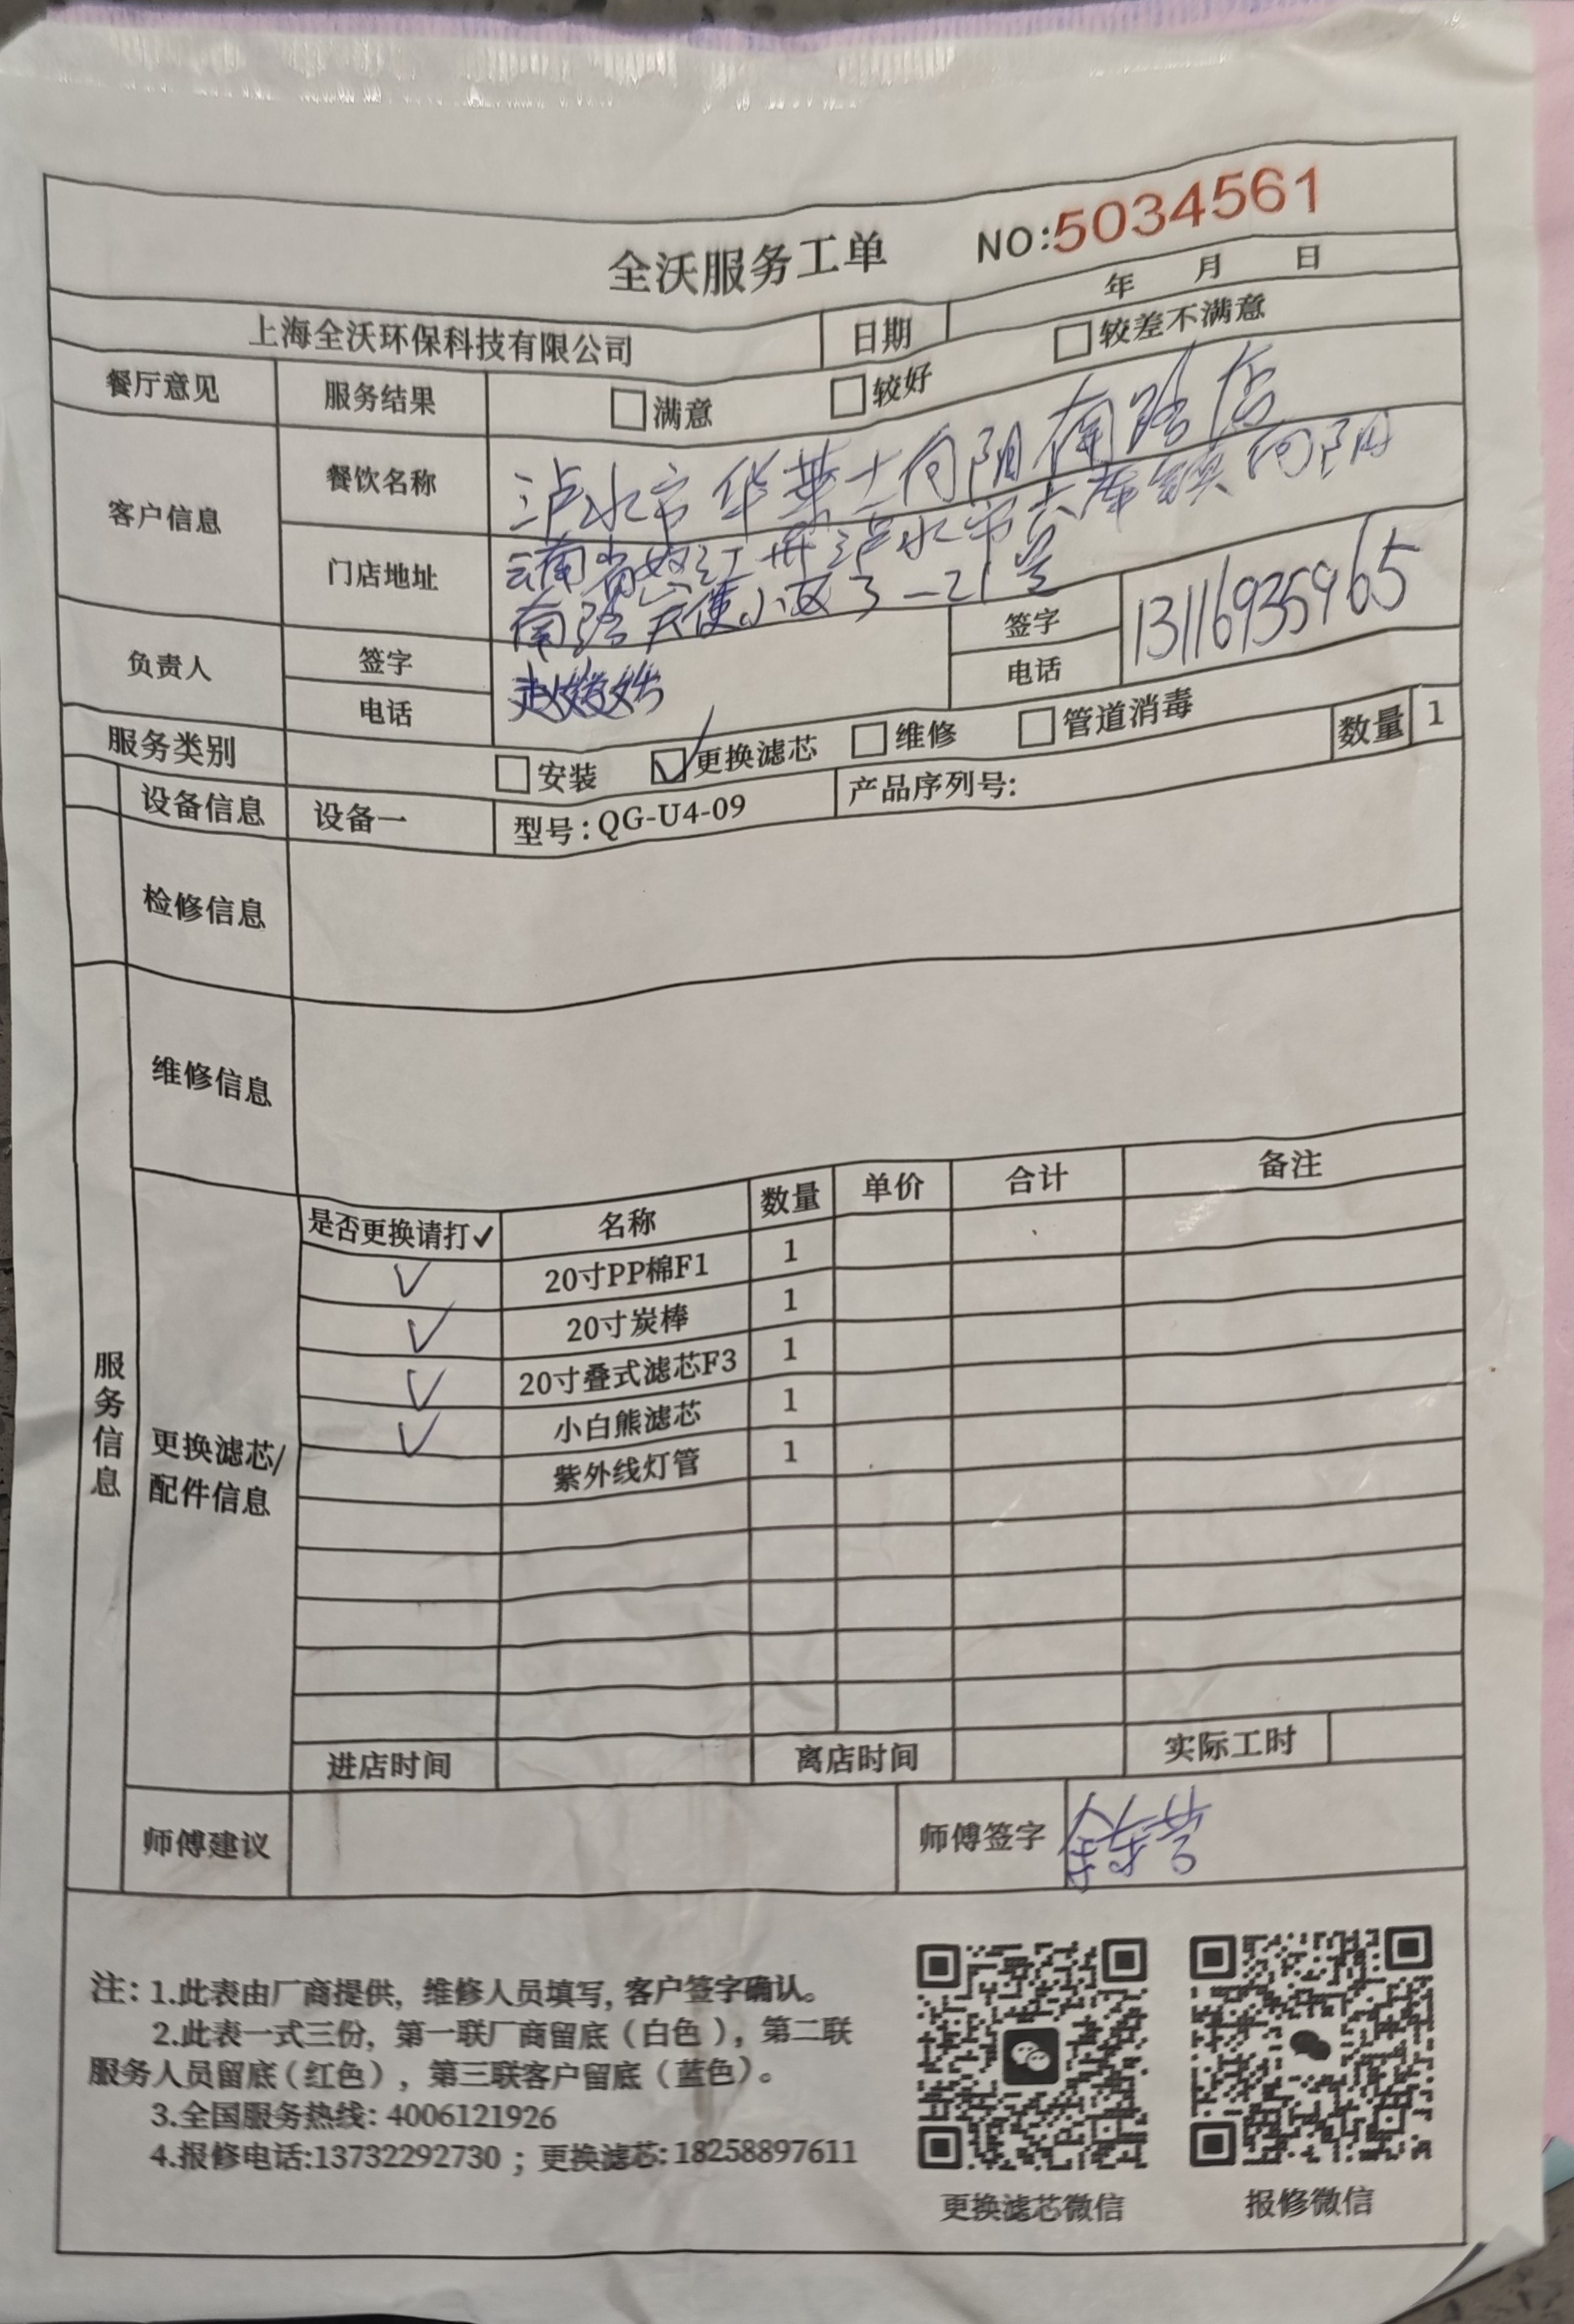 全沃服务工单 NO:5034561
上海全沃环保科技有限公司 日期 年 月 日
餐厅意见 服务结果 □满意 □较好 □较差不满意
客户信息 餐饮名称 泸水市华莱士向阳南路店
门店地址 云南省怒江州泸水市六库镇向阳
南路天使小区3-21号
负责人 签字 签字 13116935965
电话 电话
服务类别 □安装 ☑更换滤芯 □维修 □管道消毒
设备信息 设备一 型号:QG-U4-09 产品序列号: 数量 1
检修信息
维修信息
服务信息
更换滤芯/
配件信息
是否更换请打✓ 名称 数量 单价 合计 备注
✓ 20寸PP棉F1 1
✓ 20寸炭棒 1
✓ 20寸叠式滤芯F3 1
✓ 小白熊滤芯 1
紫外线灯管 1
进店时间 离店时间 实际工时
师傅建议 师傅签字
注: 1.此表由厂商提供, 维修人员填写, 客户签字确认。
2.此表一式三份, 第一联厂商留底(白色), 第二联
服务人员留底(红色), 第三联客户留底(蓝色)。
3.全国服务热线: 4006121926
4.报修电话:13732292730 ; 更换滤芯:18258897611
更换滤芯微信 报修微信